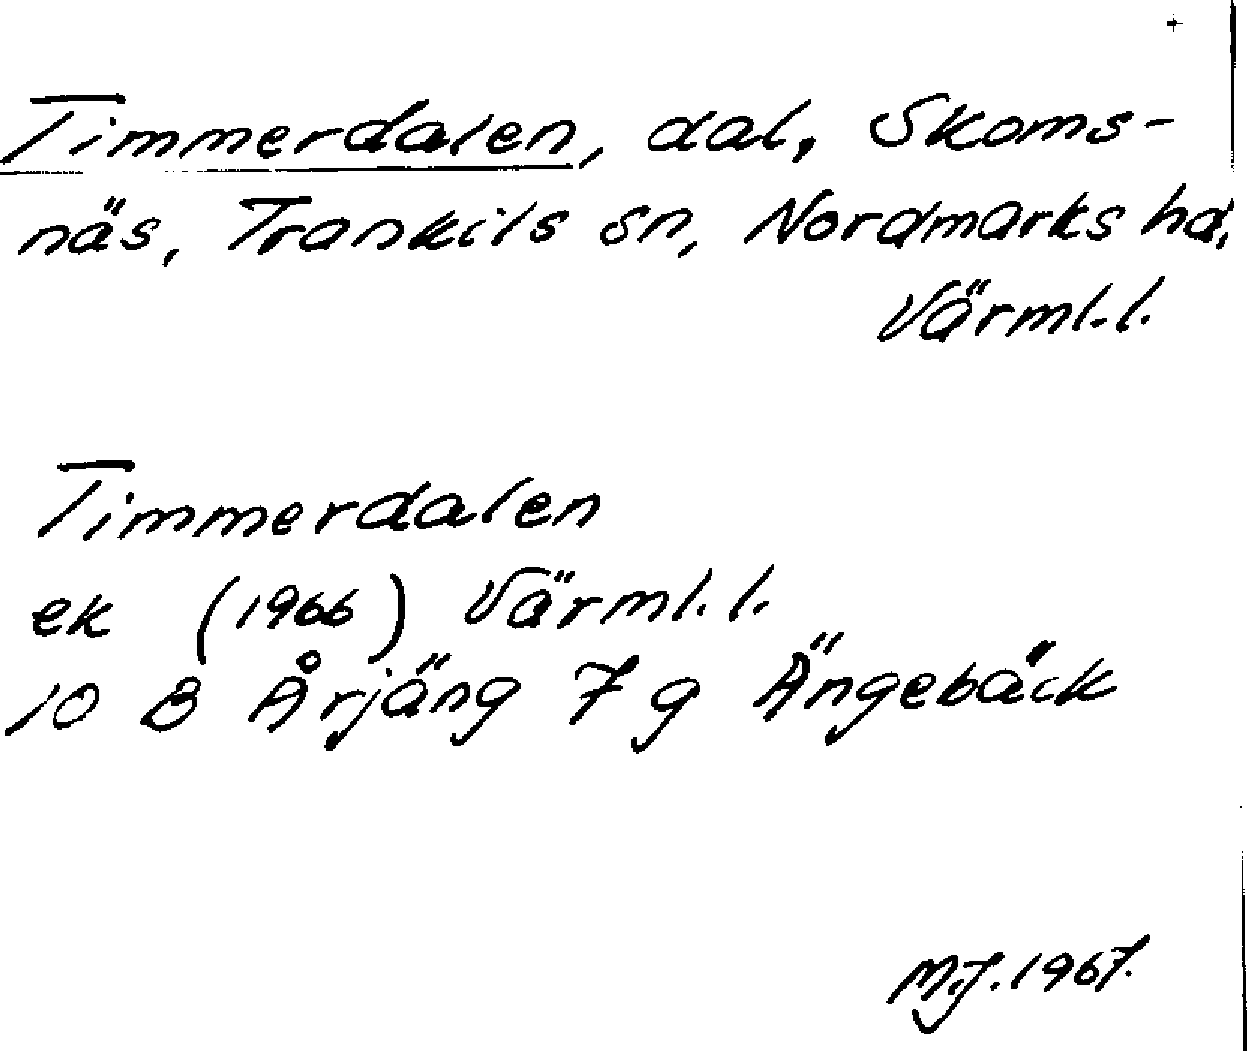 Timmerdalen, dal, Skoms-
näs, Trankils sn, Nordmarks hd,
Värml.l.
Timmerdalen
ek (1966) Värml.l.
10 B Årjäng 7 g Ängebäck
M.J. 1967.